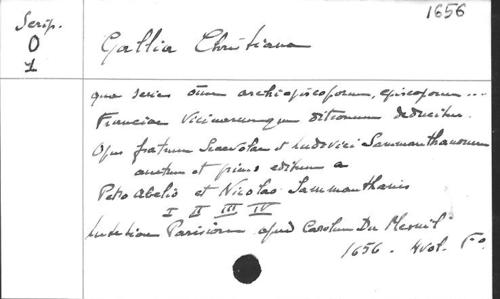 1656
Scrip.
O
1
Gallia Christiana
qua series oium archiepiscoporum, episcoporum ...
Franciae vicinarumque ditionum deducitur.
Opus fratrum Scaevolae et Ludovici Sammarthanorum
auctum et primo editum a
Petro Abelio et Nicolao Sammarthanis
I II III IV
Lutetiae Parisiorum apud Carolum Du Mesnil
1656. 4 vol. Fo.